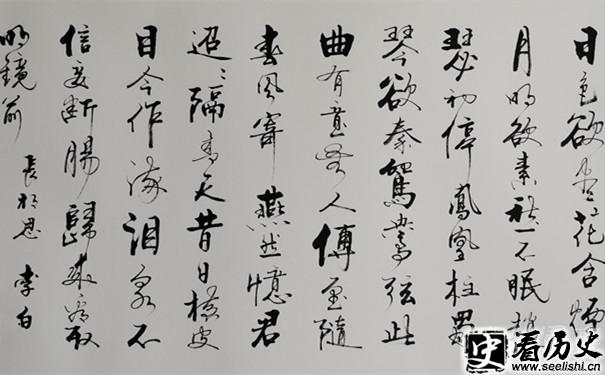 日色欲尽花含烟
月明欲素愁不眠趙
瑟初停鳳凰柱蜀
琴欲奏鴛鴦弦此
曲有意無人傳願隨
春風寄燕然憶君
迢〻隔青天昔日橫波
目今作流泪泉不
信妾断腸歸来看取
明鏡前
長相思 李白
史看历史
www.seelishi.cn